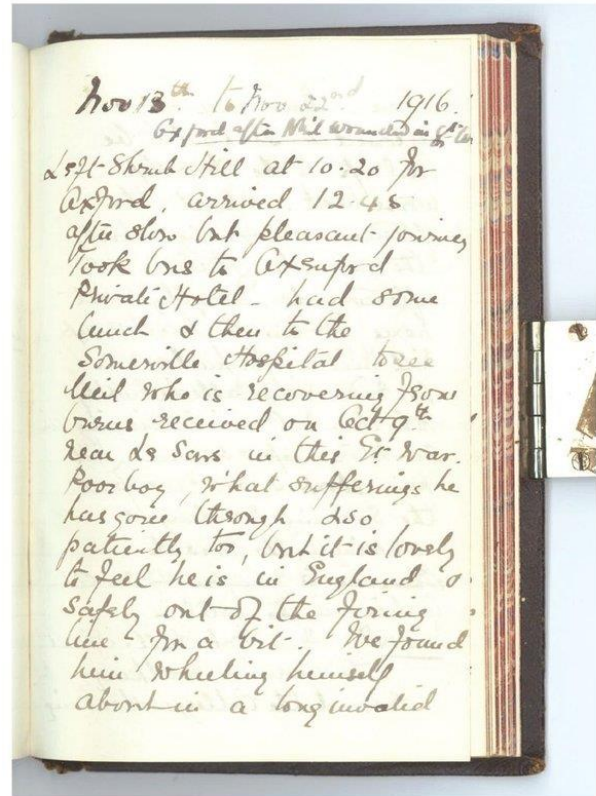 Nov 13th to Nov 22nd 1916.
Oxford after Neil wounded in Gt War
Left Shrub Hill at 10.20 for
Oxford, arrived 12.45
after slow but pleasant journey
Took bus to Oxenford
Private Hotel - had some
lunch & then to the
Somerville Hospital to see
Neil who is recovering from
burns received on Oct 9th
near Le Sars in this Gt War.
Poor boy, what sufferings he
has gone through & so
patiently too, but it is lovely
to feel he is in England &
safely out of the firing
line for a bit. We found
him wheeling himself
about in a long invalid